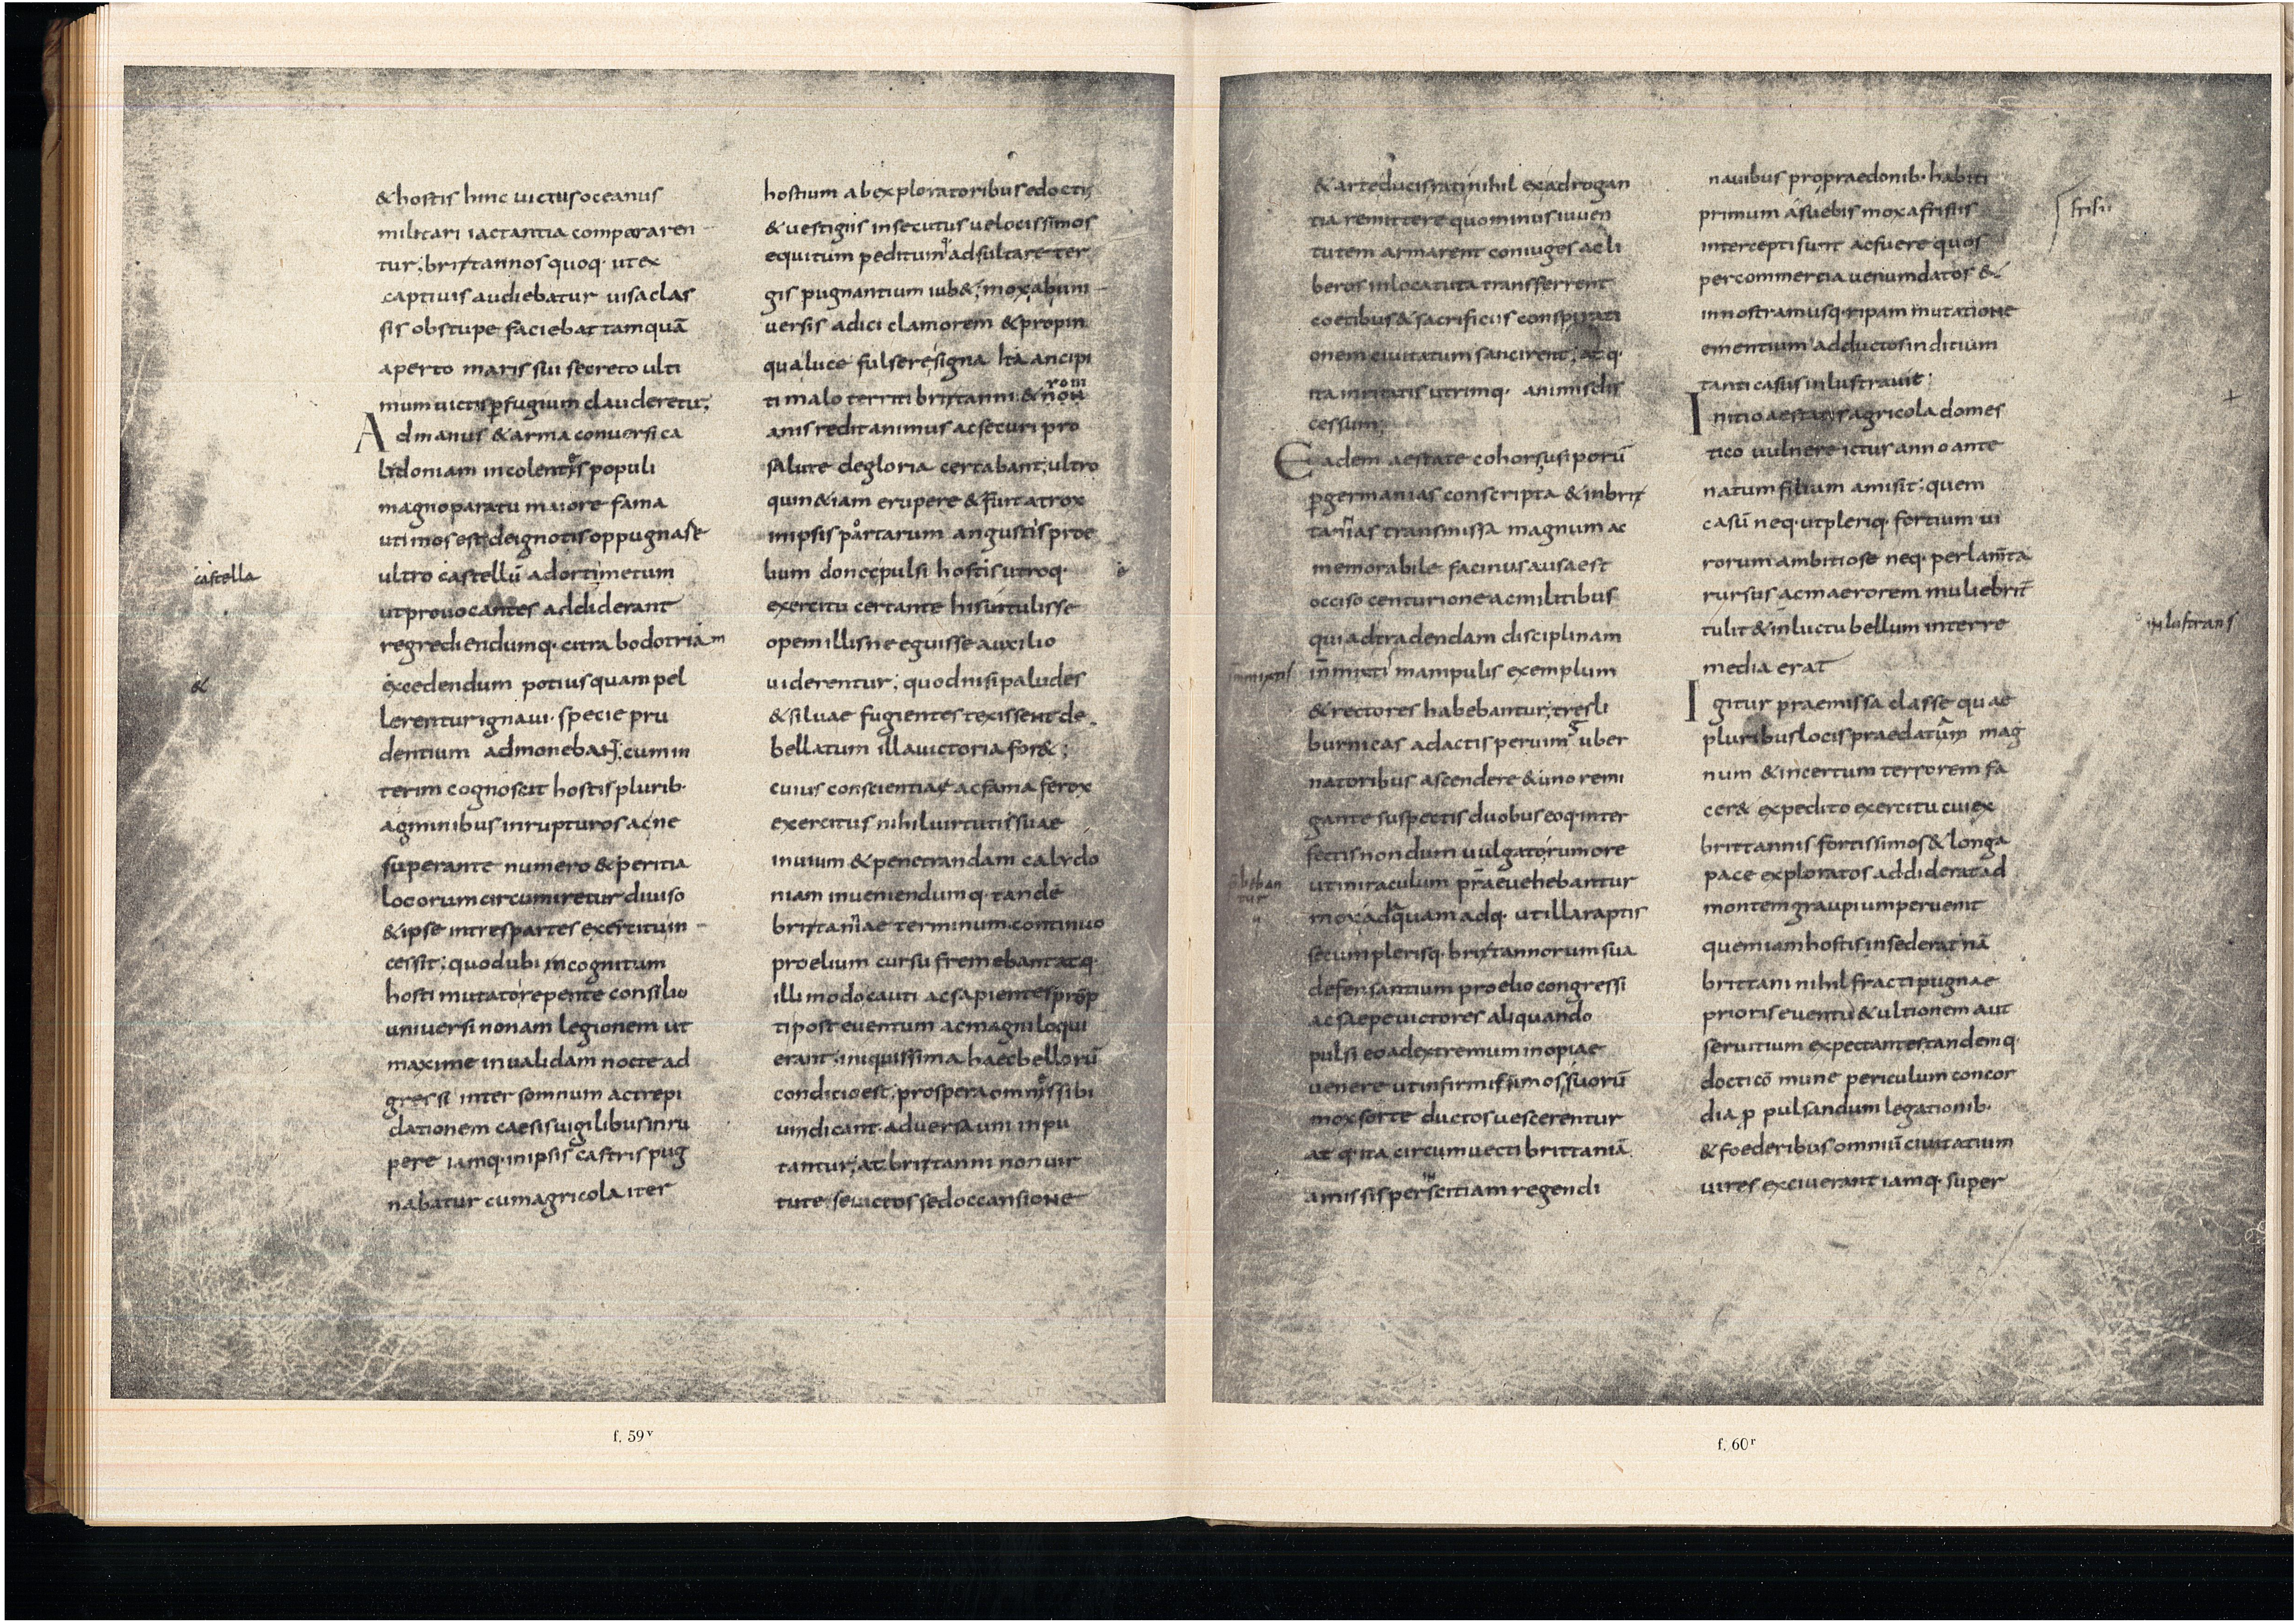 & hostis hinc uictus oceanus
militari iactantia compararen
tur; brittannos quoq· ut ex
captiuis audiebatur uisa clas
sis obstupe faciebat tamquā
aperto maris sui secreto ulti
mum uictis pfugium clauderetur;
Ad manus & arma conuersi ca
lidoniam incolentes populi
magno paratu maiore fama
uti mos est de ignotis oppugnasse
castella
ultro castellū adorti metum
ut prouocantes addiderant
regrediendumq· citra bodotriam
&
excedendum potius quam pel
lerentur ignaui· specie pru
dentium admonebant; cum in
terim cognoscit hostis plurib·
agminibus inrupturos ac ne
superante numero & peritia
locorum circumiretur diuiso
& ipse in tres partes exercitu in
cessit; quod ubi incognitum
hosti mutato repente consilio
uniuersi nonam legionem ut
maxime inualidam nocte ad
gressi inter somnum ac trepi
dationem caesis uigilibus inru
pere iamq· in ipsis castris pug
nabatur cum agricola iter
hostium ab exploratoribus edoctus
& uestigiis insecutus uelocissimos
equitum peditumq adsultare ter
gis pugnantium iub&; mox ab uni
uersis adici clamorem & propin
qua luce fulsere signa ita ancipi
rom
ti malo territi brittanni & non
anis redit animus ac securi pro
salute de gloria certabant; ultro
quin & iam erupere & fuit atrox
in ipsis portarum angustiis proe
lium donec pulsi hostis utroq·
exercitu certante his ut tulisse
opem illis ne eguisse auxilio
uiderentur; quod nisi paludes
& siluae fugientes texissent de
bellatum illa uictoria for&;
cuius conscientia ac fama ferox
exercitus nihil uirtuti suae
inuium & penetrandam calydo
niam inueniendumq· tandē
brittanniae terminum continuo
proelium cursu fremebant atq·
illi modo cauti ac sapientes prōp
ti post euentum ac magni loqui
erant; iniquissima haec bellorū
condicio est; prospera omnes sibi
uindicant· aduersa uni inpu
tantur; at brittanni non uir
tute se uictos sed occansione
f. 59v
& arte ducis rati nihil ex adrogan
tia remittere quominus iuuen
tutem armarent coniuges ac li
beros in loca tuta transferrent
coetibus & sacrificiis conspirati
onem ciuitatum sancirent; atq·
ita inritatis utrimq· animis dis
cessum;
Eadem aestate cohors usiporū
p germanias conscripta & in brit
tannias transmissa magnum ac
memorabile facinus ausa est
occiso centurione ac militibus
qui ad tradendam disciplinam
inmixti manipulis exemplum
& rectores habebantur; tres li
burnicas adactis per uim guber
natoribus ascendere & uno remi
gante suspectis duobus eoq· inter
fectis nondum uulgato rumore
ut miraculum praeuehebantur
mox ad quam adq· ut illa raptis
secum plerisq· brittannorum sua
defensantium proelio congressi
ac saepe uictores aliquando
pulsi eo ad extremum inopiae
uenere ut infirmissimos suorū
mox sorte ductos uescerentur
atq· ita circumuecti brittaniā
amissis per inscitiam regendi
nauibus pro praedonib· habiti
primum a suebis mox a frisiis
frisii
intercepti sunt ac fuere quos
per commercia uenumdatos &
in nostram usq· ripam mutatione
ementium adductos indicium
tanti casus inlustrauit;
Initio aestatis agricola domes
tico uulnere ictus anno ante
natum filium amisit; quem
casū neq· ut pleriq· fortium ui
rorum ambitiose neq· per lamta
rursus ac maerorem muliebrit
tulit & in luctu bellum inter re
media erat
Igitur praemissa classe quae
pluribus locis praedatum mag
num & incertum terrorem fa
cer& expedito exercitu cui ex
brittannis fortissimos & longa
pace exploratos addiderat ad
montem graupium peruenit
quem iam hostis insederat nā
brittani nihil fracti pugnae
prioris euentu & ultionem aut
seruitium expectantes tandemq·
docti cō mune periculum concor
dia p pulsandum legationib·
& foederibus omniū ciuitatium
uires exciuerant iamq· super
f. 60r